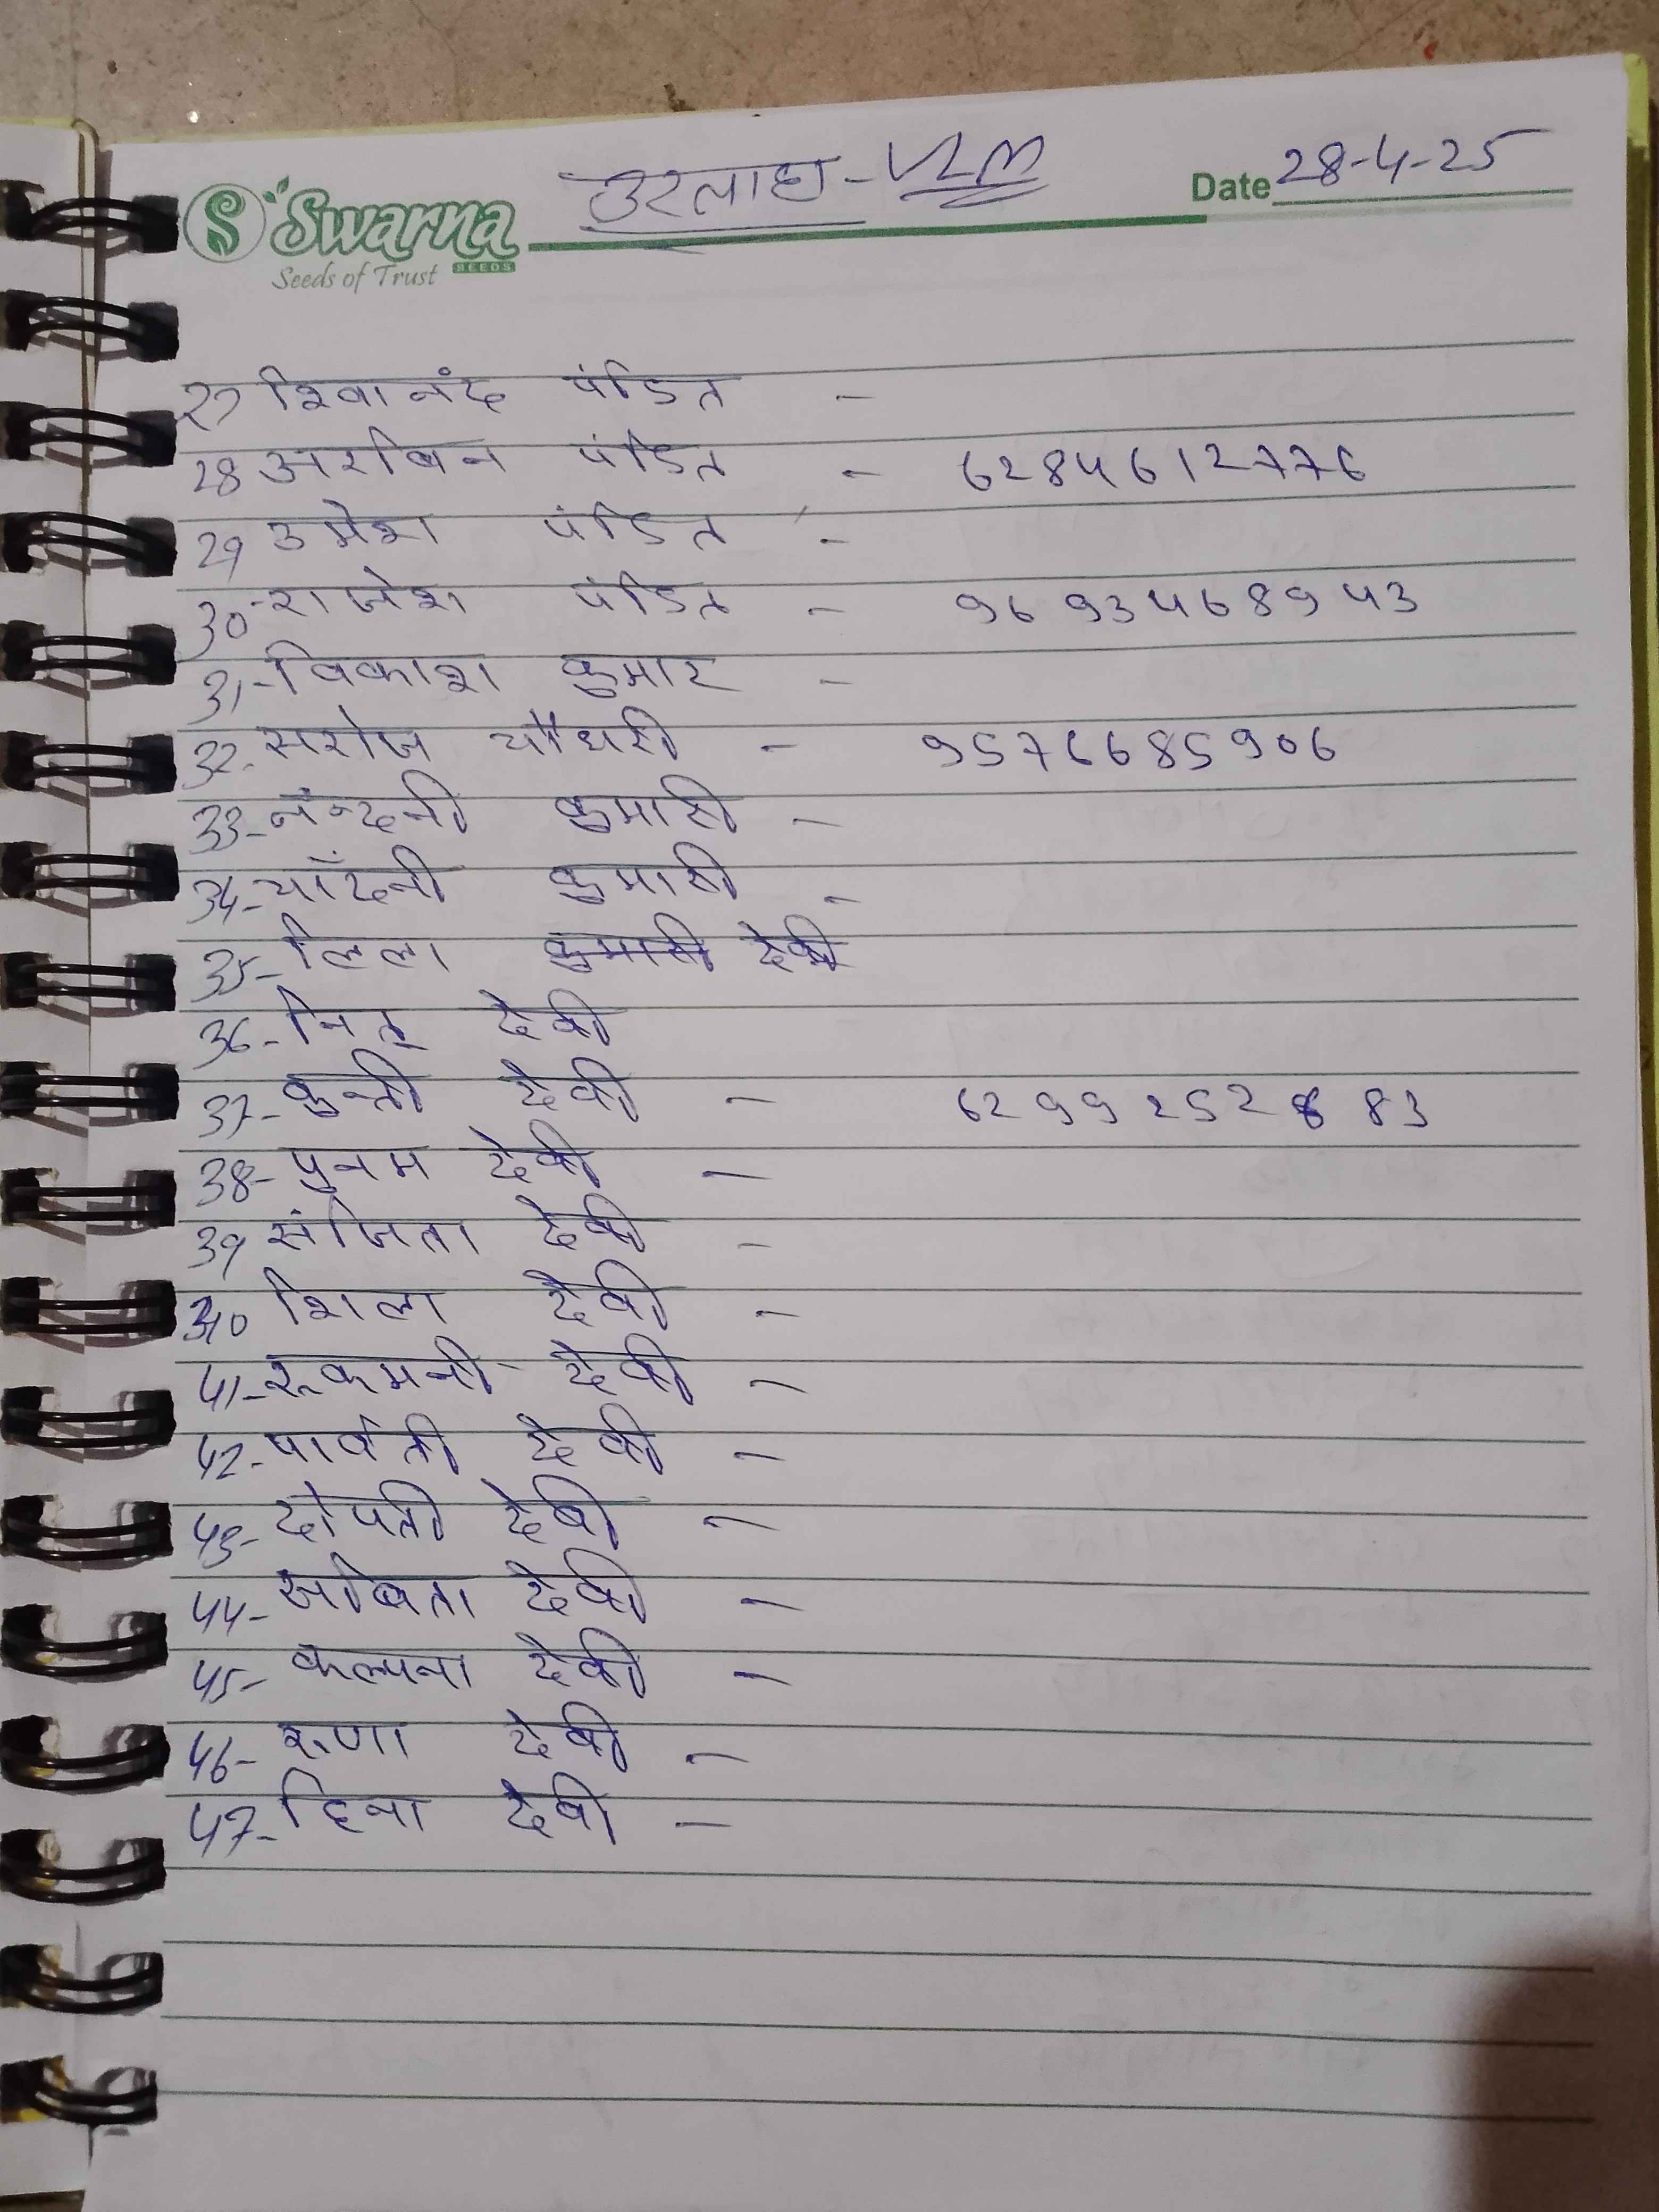 उरलाहा - VLM
Date 28-4-25
Swarna
SEEDS
Seeds of Trust
27 शिवानंद पंडित -
28 अरविन पंडित - 6284612776
29 उमेश पंडित -
30- राजेश पंडित - 9693468943
31- विकाश कुमार -
32- सरोज चौधरी - 9576685906
33- नंन्दनी कुमारी -
34- चाँदनी कुमारी -
35- लिला कुमारी देवी
36- नितू देवी
37- कुन्ती देवी - 6299252883
38- पुनम देवी -
39 संजिता देवी -
40 शिला देवी -
41- रूकमनी देवी -
42- पार्वती देवी -
43- दोपती देवी -
44- सबिता देवी -
45- कल्पना देवी -
46- रूणा देवी -
47- हिना देवी -